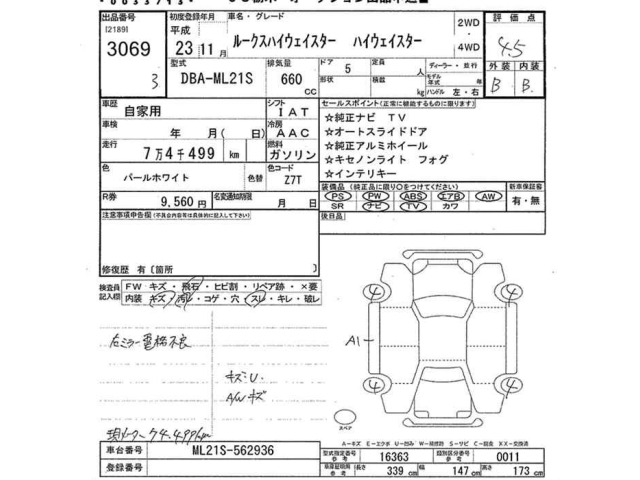 出品番号
[2189]
3069
3
初度登録年月
平成
23年11月
車名・グレード
ルークスハイウェイスター ハイウェイスター
2WD
・
4WD
評価点
4.5
型式
DBA-ML21S
排気量
660
CC
ドア 5
形状
定員
人
積載
kg
ディーラー・並行
モデル年式 年
ハンドル 左・右
外装 内装
B B
車歴
自家用
シフト
IAT
車検
年 月( 日)
冷房
AAC
走行
7万4千499 km
燃料
ガソリン
色
パールホワイト
色替
色コード
Z7T
R券
9,560 円
名変通知期限
月 日
セールスポイント(正常に機能するものに限ります)
☆純正ナビ TV
☆オートスライドドア
☆純正アルミホイール
☆キセノンライト フォグ
☆インテリキー
装備品 (純正品に限り○をつけてください)
PS PW ABS エアB AW
SR ナビ TV カワ
新車保証書
有・無
後日品
注意事項申告欄(不具合内容等は具体的に記入して下さい)
修復歴 有〔箇所 〕
検査員記入欄
FW キズ・飛石・ヒビ割・リペア跡・×要
内装 キズ・汚レ・コゲ・穴・スレ・キレ・破レ
右ミラー電格不良
キズ・U.
A/Wキズ
4
4
A1
4
4
スペア
A-キズ E-エクボ U-凹み W-補修跡 S-サビ C-腐蝕 XX-交換済
車台番号
ML21S-562936
登録番号
型式指定番号
参考
16363
類別区分番号
参考
0011
車庫証明用
参考
長さ
339 cm
幅
147 cm
高さ
173 cm